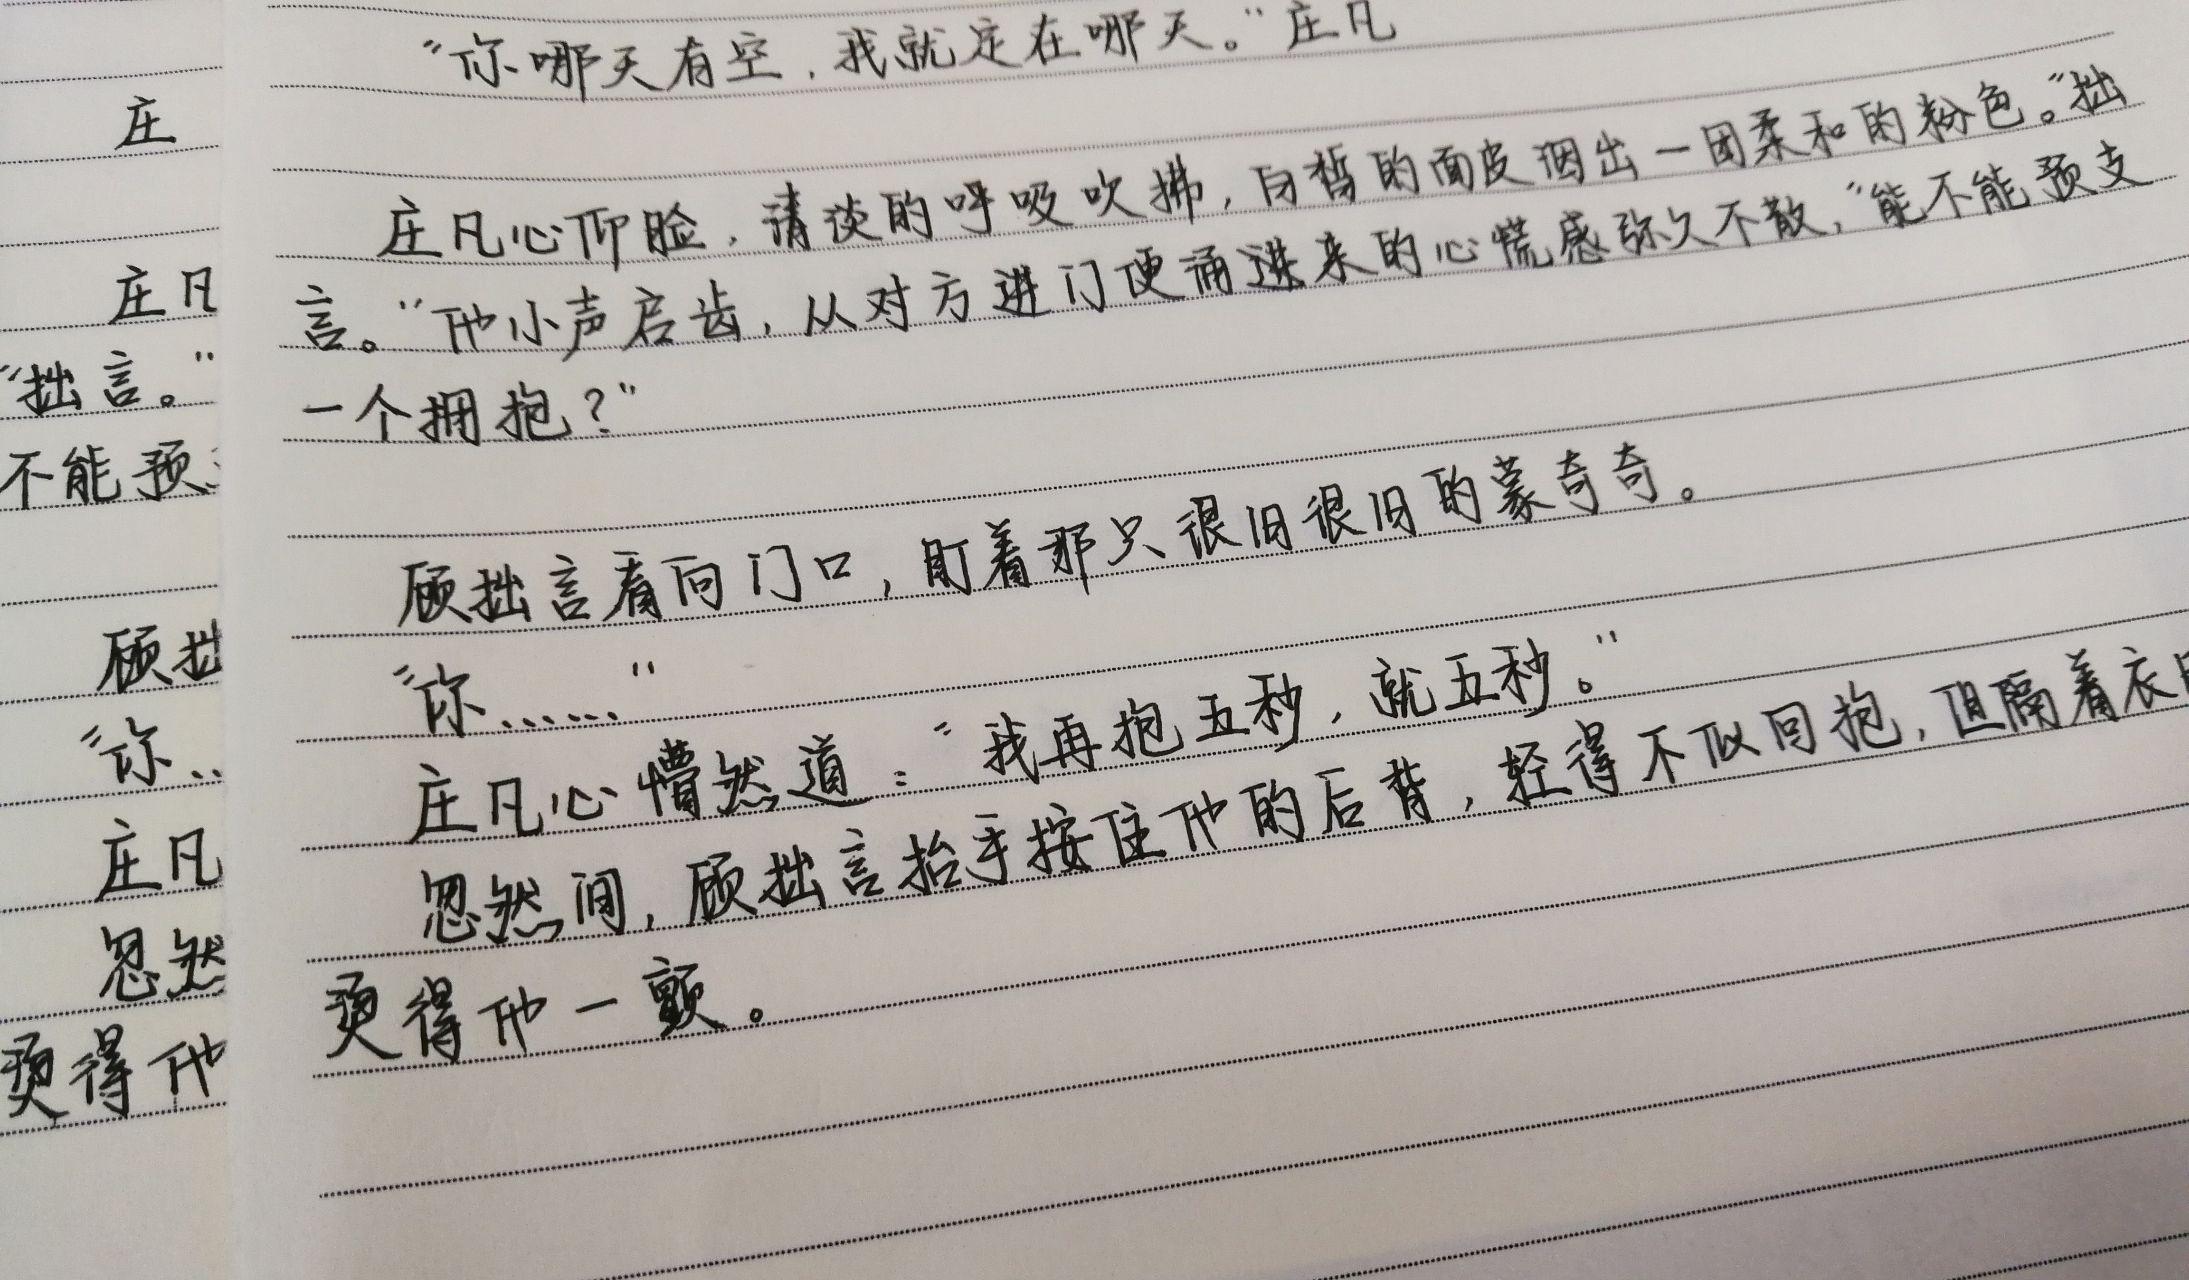 庄
庄凡
“拙言。”
不能预
顾拙
“你..
庄凡
忽然
烫得他
“你哪天有空，我就定在哪天。”庄凡
庄凡心仰脸，清淡的呼吸吹拂，白皙的面皮洇出一团柔和的粉色。“拙
言。”他小声启齿，从对方进门便涌进来的心慌感弥久不散，“能不能预支
一个拥抱？”
顾拙言看向门口，盯着那只很旧很旧的蒙奇奇。
“你……”
庄凡心懵然道：“我再抱五秒，就五秒。”
忽然间，顾拙言抬手按住他的后背，轻得不似回抱，但隔着衣
烫得他一颤。